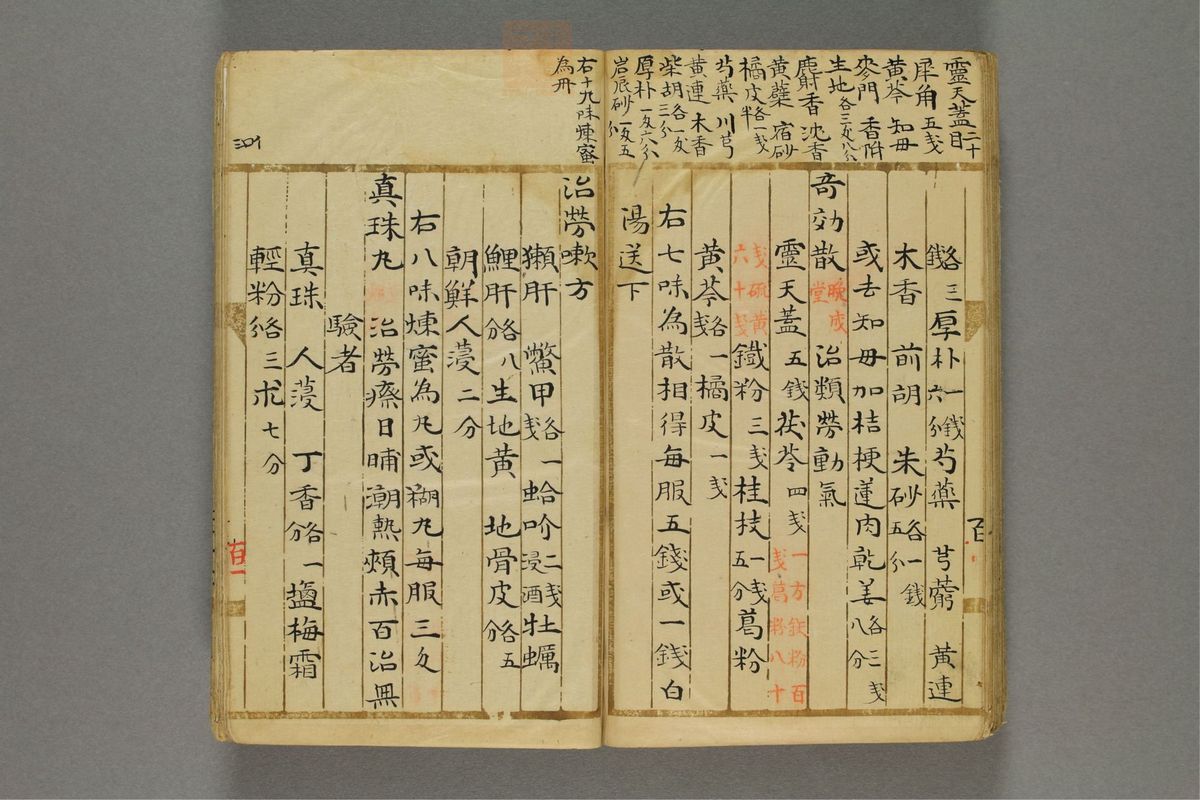 靈天蓋二十目
犀角五戔
黄芩 知母
麥門 香附
生地各三戔八分
麝香 沈香
黄蘗 宿砂
橘皮各一戔半
芍藥 川芎
黄連 木香
柴胡各一戔三分
厚朴一戔六分
岩辰砂一戔五分
各三錢厚朴一錢六分芍藥 芎藭 黄連
木香 前胡 朱砂各一錢五分
或去知母加桔梗蓮肉乾姜各三戔八分
奇効散晩成堂 治類勞動氣
靈天蓋五錢茯苓四戔一方鉄粉百戔葛粉八十
戔硫黄六十戔鐵粉三戔桂枝一戔五分葛粉
黄芩各一戔橘皮一戔
右七味為散相得每服五錢或一錢白
湯送下
右十九味煉蜜
為丹
治勞嗽方
獺肝 鱉甲各一戔蛤吤二戔浸酒牡蠣
鯉肝各八分生地黄 地骨皮各五分
朝鮮人蓡二分
右八味煉蜜為丸或糊丸每服三分
真珠丸 治勞瘵日晡潮熱頰赤百治無
驗者
真珠 人蓡 丁香各一分鹽梅霜
輕粉各三分朮七分
百一